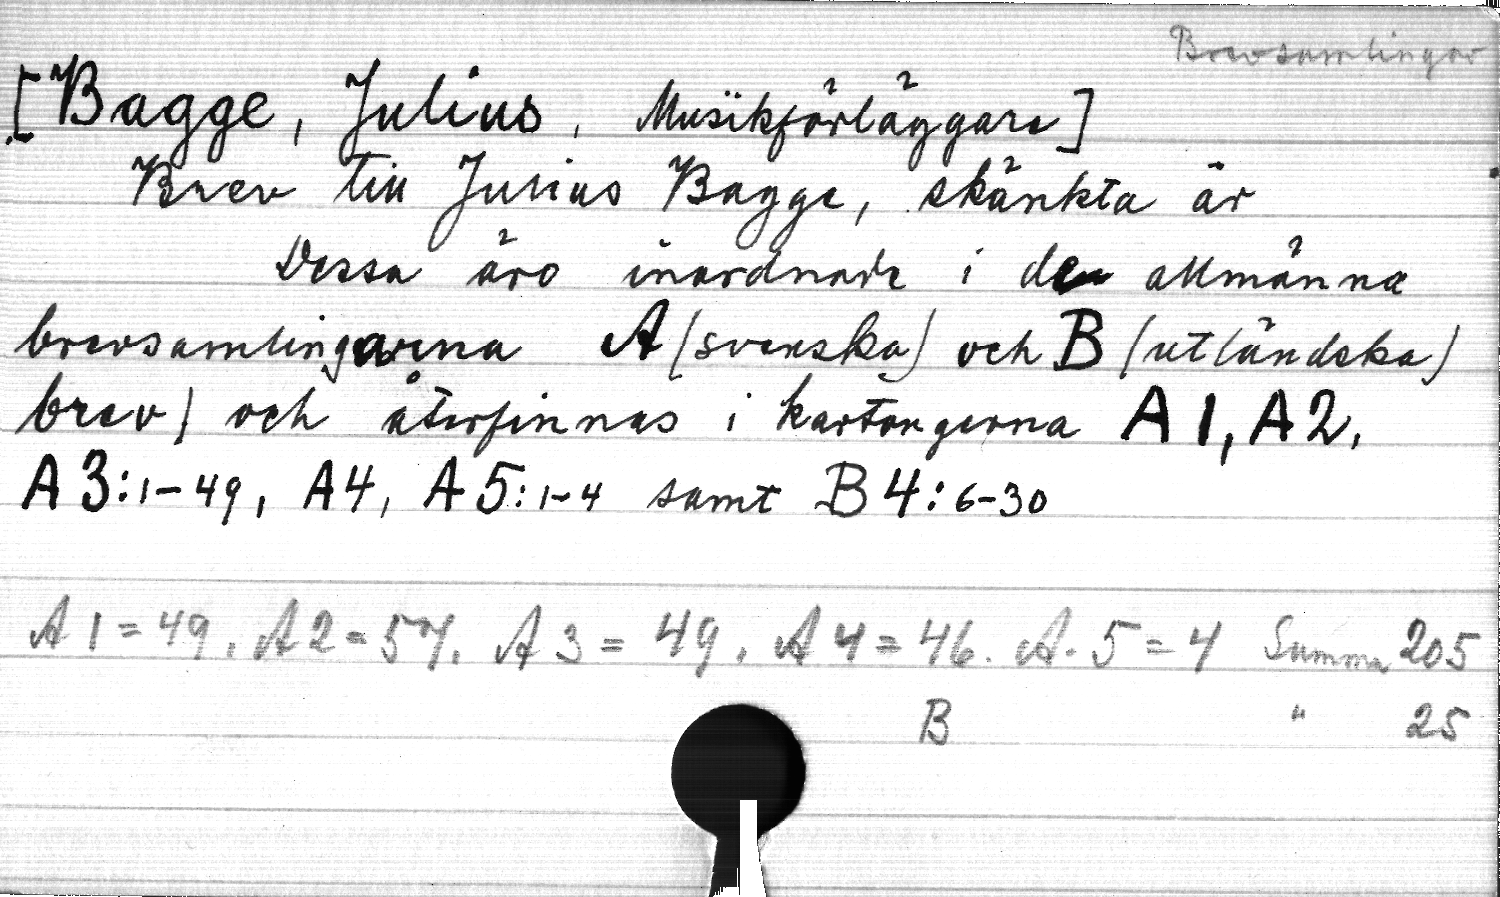 Brevsamlingar
[Bagge, Julius, Musikförläggare]
Brev till Julius Bagge, skänkta år
Dessa äro inordnade i den allmänna
brevsamlingarna A (svenska) och B (utländska)
brev) och återfinnas i kartongerna A1, A2,
A3:1-49, A4, A5:1-4 samt B4:6-30
A1=49. A2=57. A3=49. A4=46. A.5=4 Summa 205
B " 25